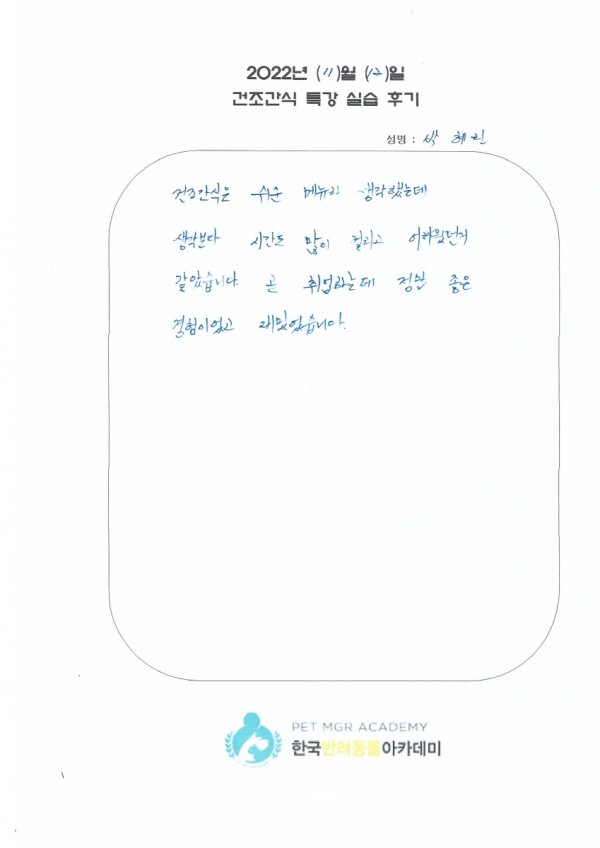 2022년 (11)월 (12)일
건조간식 특강 실습 후기
성명 : 박혜린
건조간식은 쉬운 메뉴라 생각했는데
생각보다 시간도 많이 걸리고 어려웠던거
같았습니다. 곧 취업하는데 정말 좋은
경험이었고 재밌었습니다.
PET MGR ACADEMY
한국반려동물아카데미